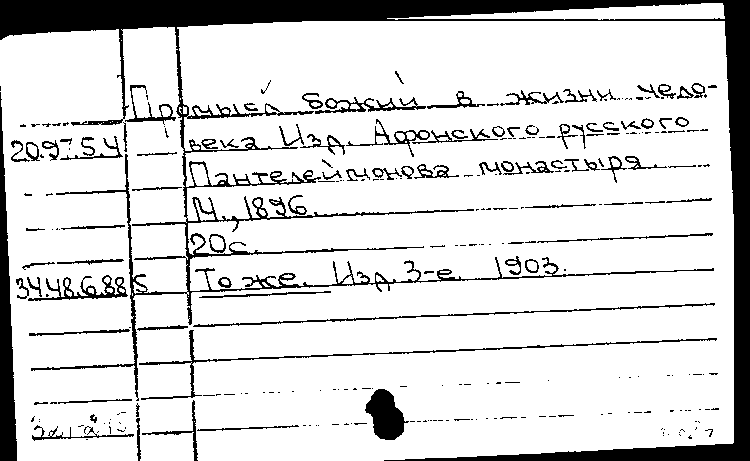 Промысл Божий в жизни чело-
20.97.5.4 века. Изд. Афонского русского
Пантелеймонова монастыря.
М., 1896.
20с.
34.48.6.88 То же. Изд. 3-е. 1903.